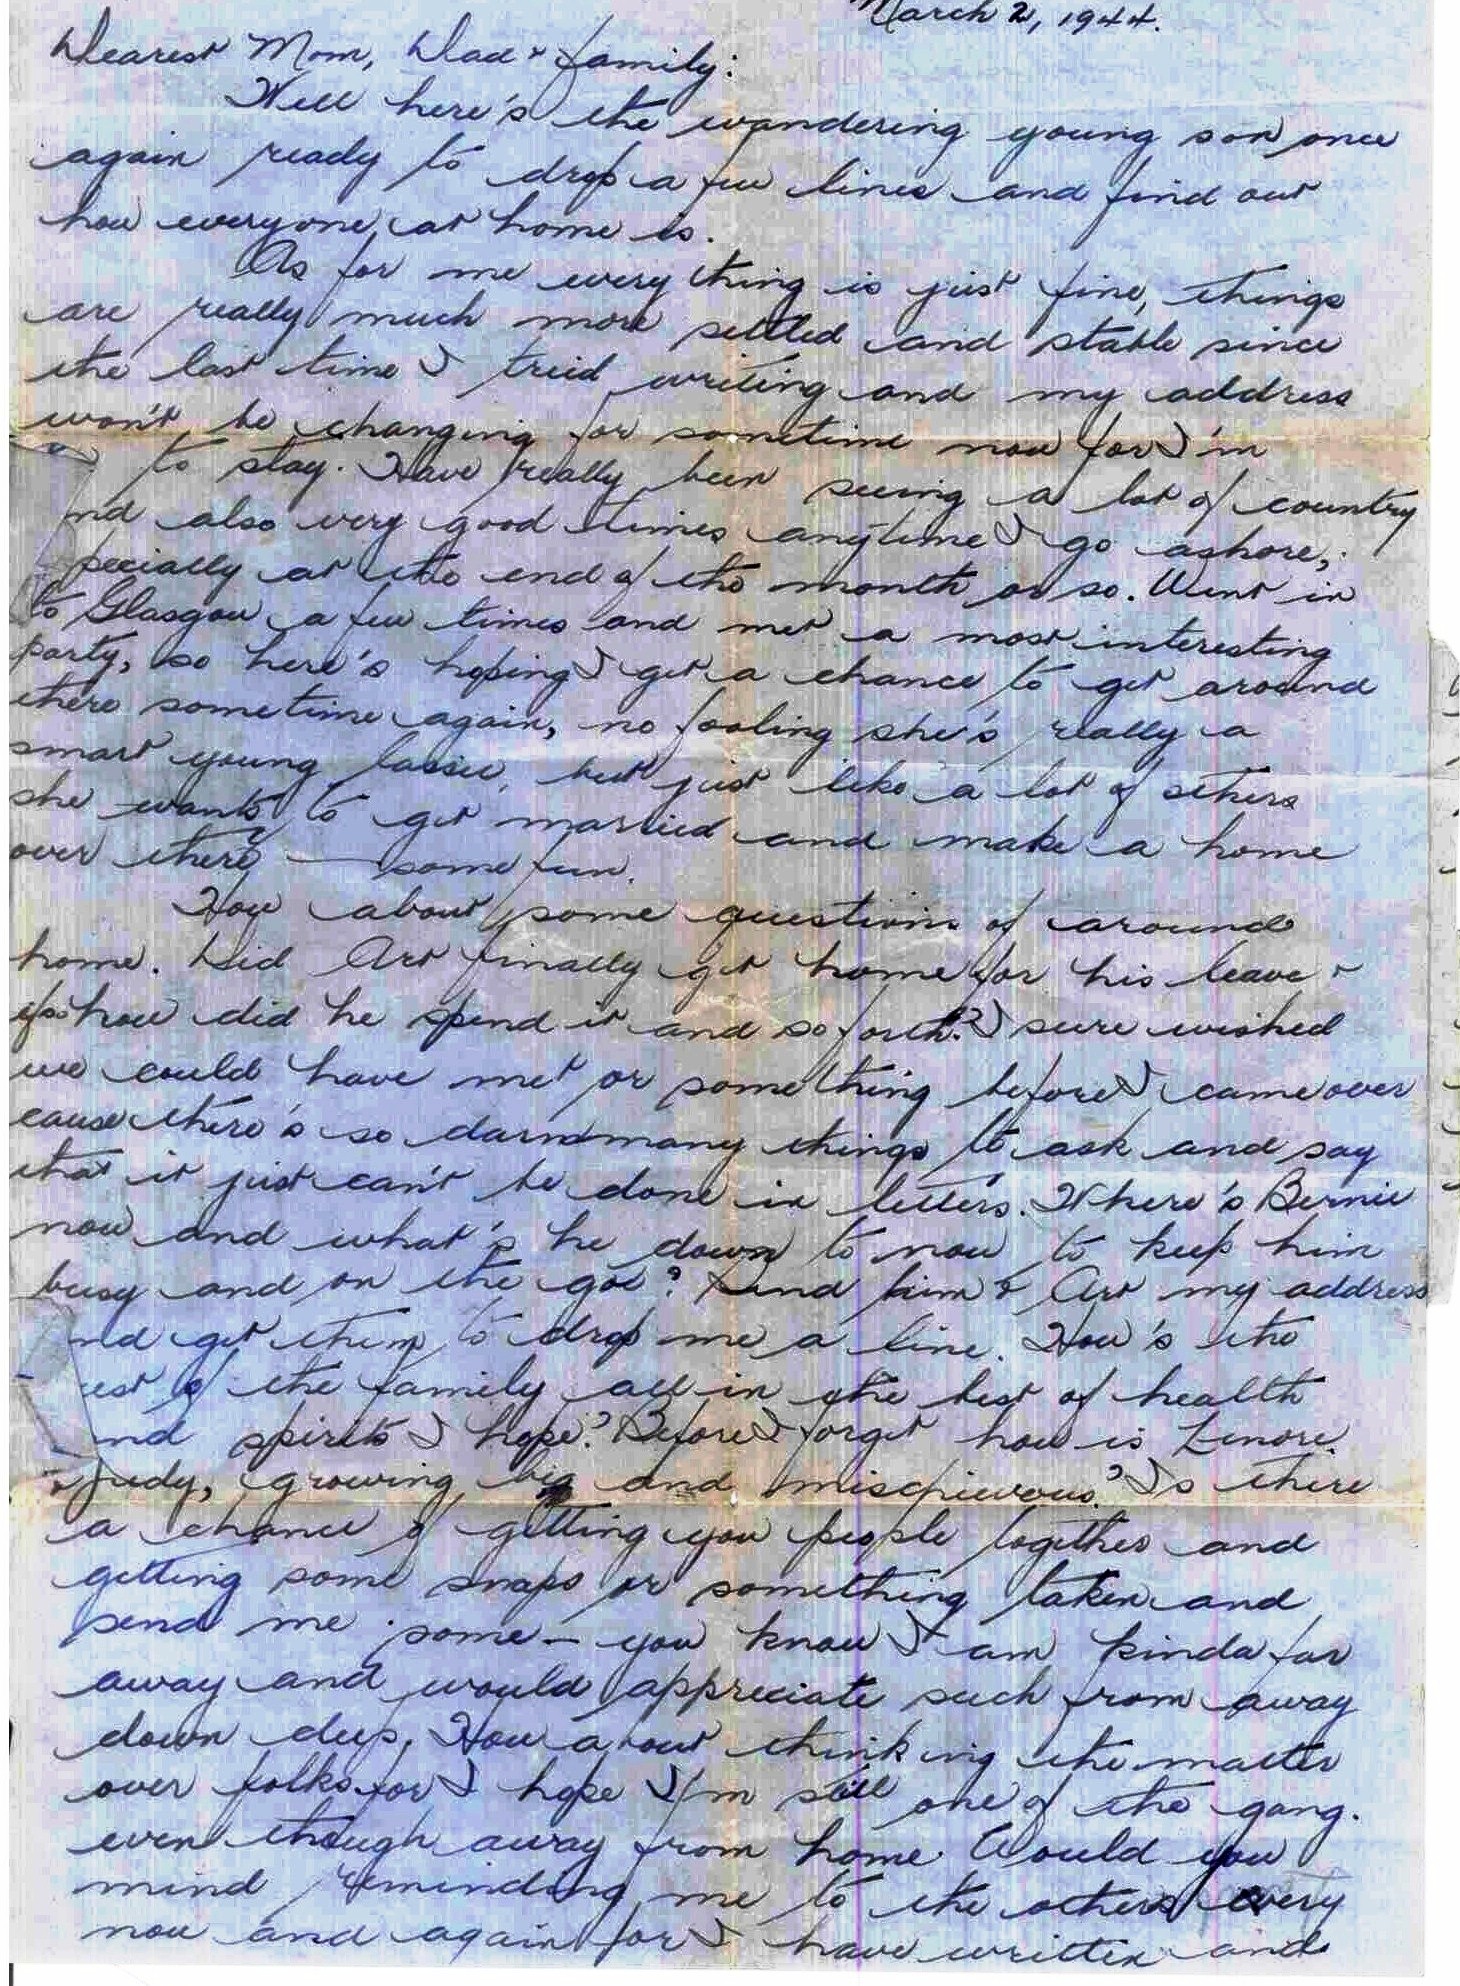 March 2, 1944.
Dearest Mom, Dad & family:
Well here's the wandering young son once
again ready to drop a few lines and find out
how everyone at home is.
As for me every thing is just fine, things
are really much more settled and stable since
the last time I tried writing and my address
won't be changing for sometime now for I'm
to stay. Have really been seeing a lot of country
nd also very good times anytime I go ashore,
pecially at the end of the month or so. Went in
to Glasgow a few times and met a most interesting
party, so here's hoping I get a chance to get around
there sometime again, no fooling she's really a
smart young lassie, but just like a lot of others
she wants to get married and make a home
over there — some fun.
How about some questions of around
home. Did Art finally get home for his leave &
if so how did he spend it and so forth? I sure wished
we could have met or something before I came over
cause there's so darn many things to ask and say
that it just can't be done in letters. Where's Bernie
now and what's he down to now to keep him
busy and on the go? Send him & Art my address
nd get them to drop me a line. How's the
est of the family all in the best of health
nd spirits I hope? Before I forget how is Lenore
& Judy, growing big and mischievous? Is there
a chance of getting you people together and
getting some snaps or something taken and
send me some – you know I am kinda far
away and would appreciate such from away
down deep. How about thinking the matter
over folks for I hope I'm still one of the gang.
even though away from home. Would you
mind reminding me to the others every
now and again for I have written and